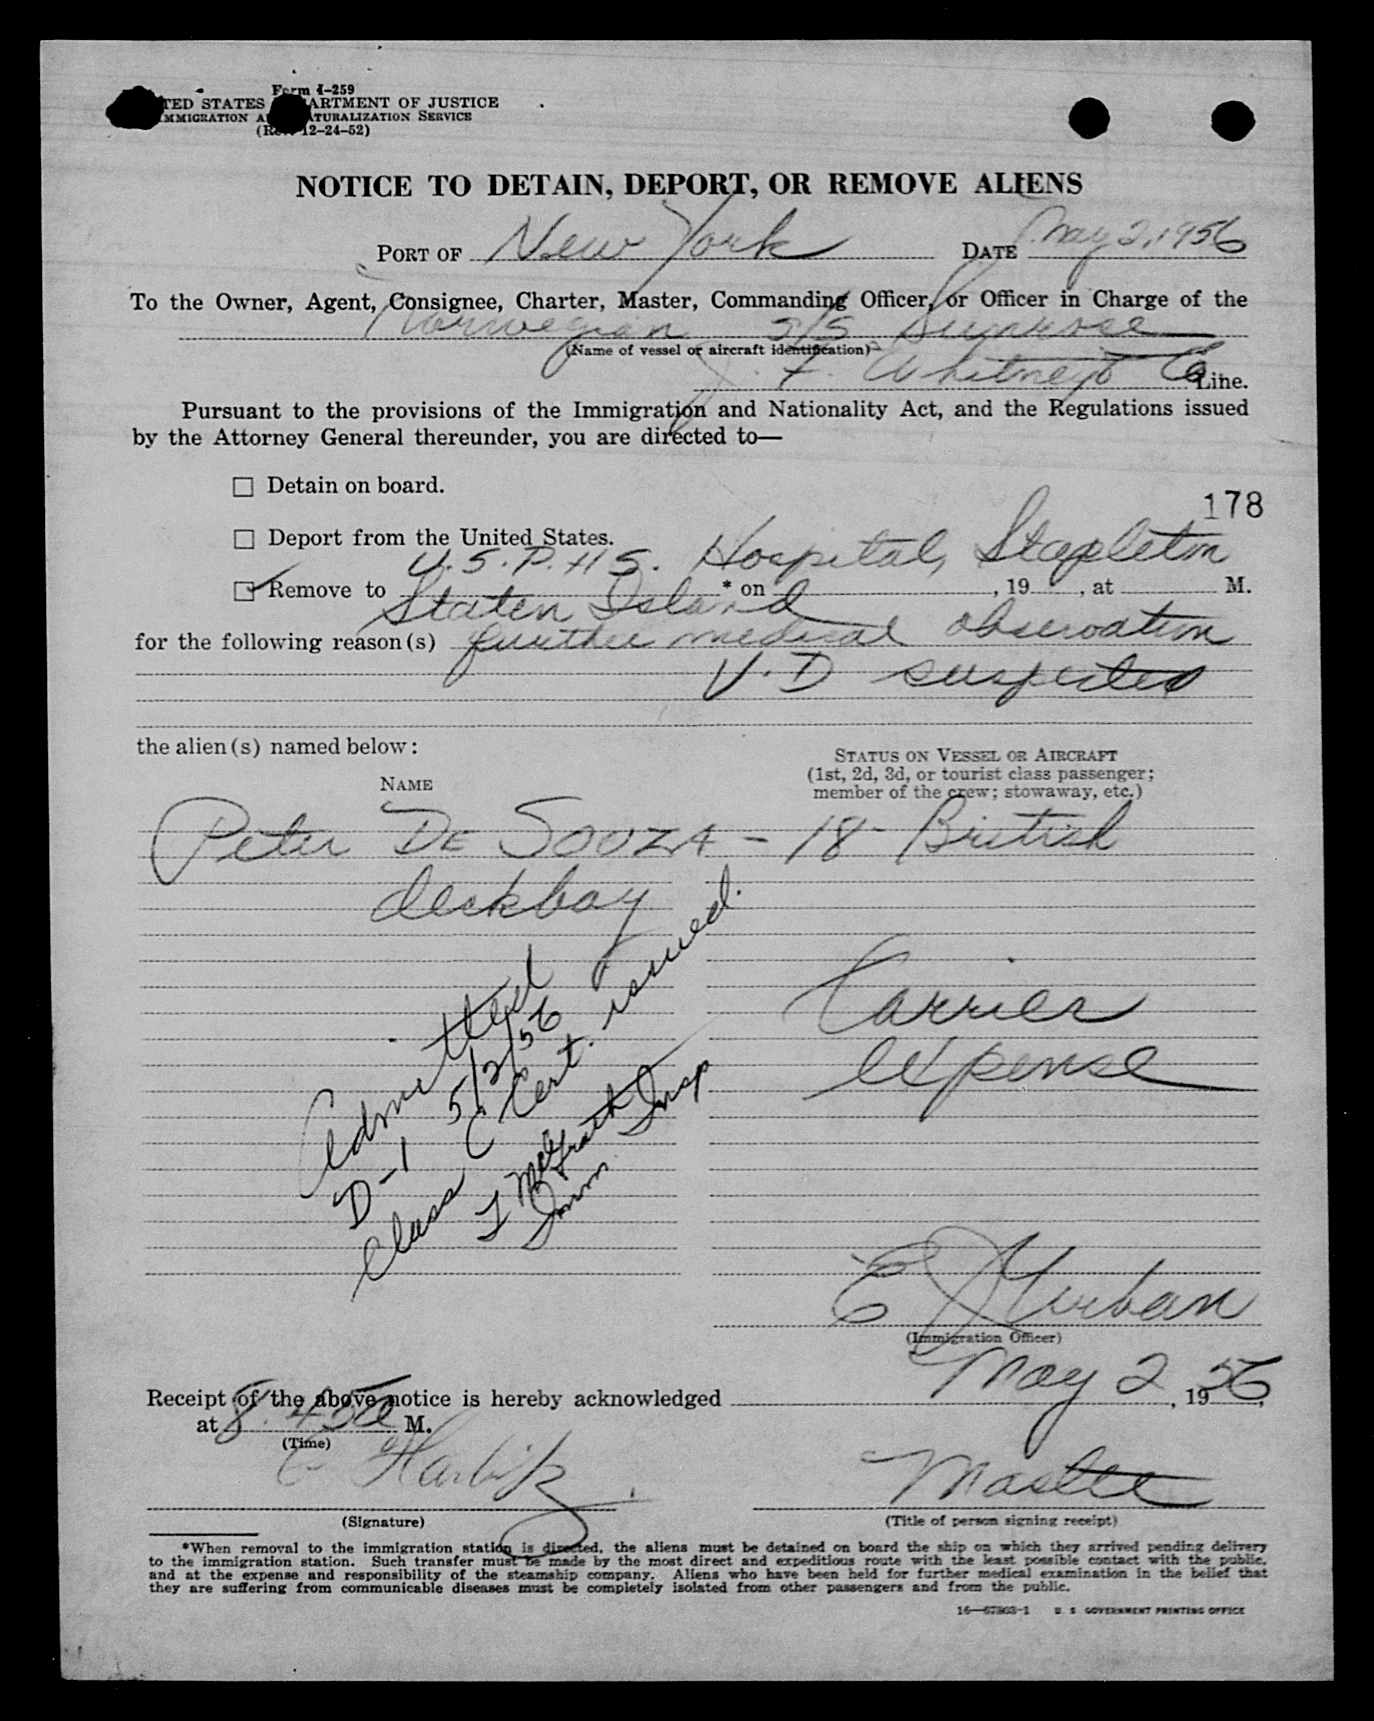 Form I-259
UNITED STATES DEPARTMENT OF JUSTICE
IMMIGRATION AND NATURALIZATION SERVICE
(Rev. 12-24-52)
NOTICE TO DETAIN, DEPORT, OR REMOVE ALIENS
PORT OF New York DATE May 2, 1956
To the Owner, Agent, Consignee, Charter, Master, Commanding Officer, or Officer in Charge of the
Norwegian S/S Sunrose
(Name of vessel or aircraft identification)
J. F. Whitney & Co Line.
Pursuant to the provisions of the Immigration and Nationality Act, and the Regulations issued
by the Attorney General thereunder, you are directed to—
☐ Detain on board.
178
☐ Deport from the United States.
U.S.P.H.S. Hospital, Stapleton
☑ Remove to Staten Island * on , 19 , at M.
for the following reason(s) further medical observation
V.D suspected
the alien(s) named below:
STATUS ON VESSEL OR AIRCRAFT
(1st, 2d, 3d, or tourist class passenger;
member of the crew; stowaway, etc.)
NAME
Peter DE SOUZA - 18 - British
deckboy
Carrier
expense
Admitted
D-1 5/2/56
Class C Cert. issued.
McGrath
Imm Insp
E J Urban
(Immigration Officer)
Receipt of the above notice is hereby acknowledged May 2, 1956,
at 8.45 a M.
(Time)
Master
(Signature) (Title of person signing receipt)
*When removal to the immigration station is directed, the aliens must be detained on board the ship on which they arrived pending delivery
to the immigration station. Such transfer must be made by the most direct and expeditious route with the least possible contact with the public,
and at the expense and responsibility of the steamship company. Aliens who have been held for further medical examination in the belief that
they are suffering from communicable diseases must be completely isolated from other passengers and from the public.
U. S. GOVERNMENT PRINTING OFFICE